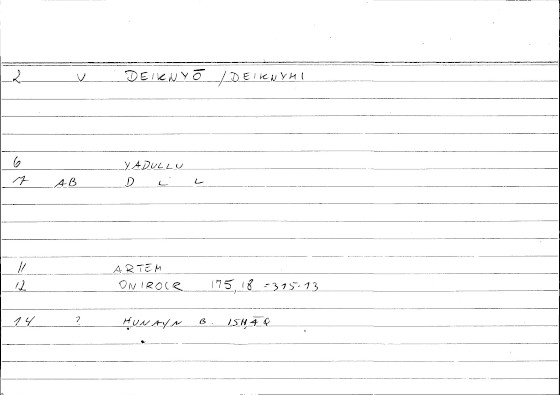 2 V DEIKNYŌ / DEIKNYMI
6 YADULLU
7 AB D L L
11 ARTEM
12 ONIROCR 175,18 = 315.13
14 ? ḤUNAYN B. ISḤĀQ